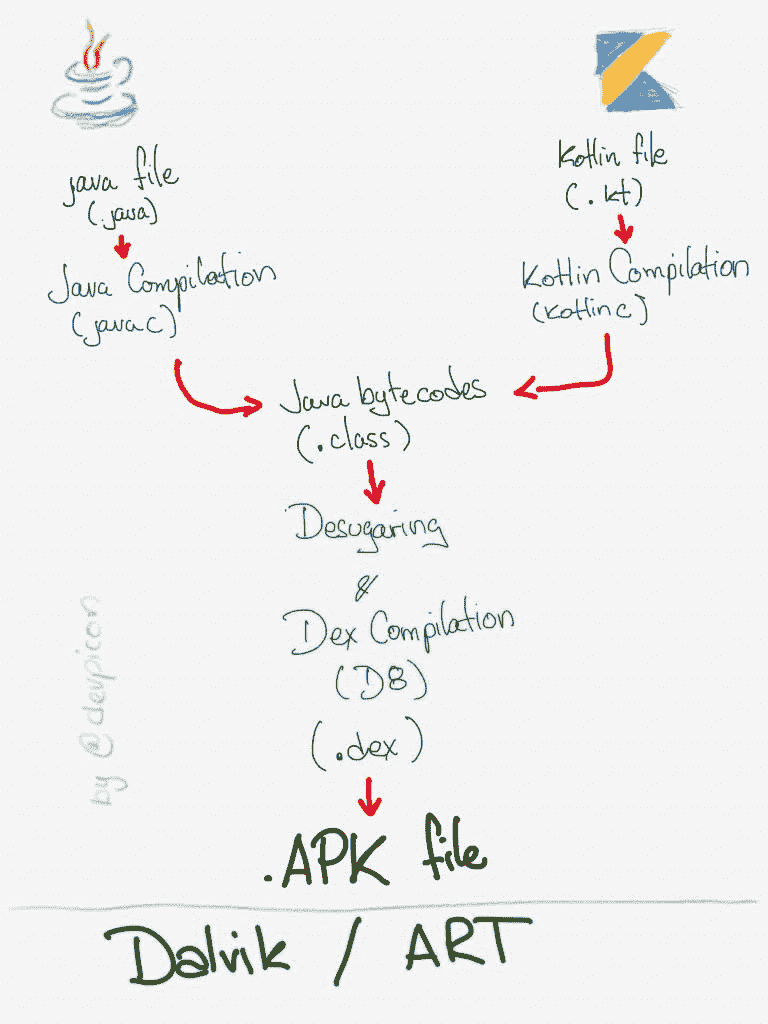 java file
(.java)
Java Compilation
(javac)
Kotlin file
(.kt)
Kotlin Compilation
(kotlinc)
Java bytecodes
(.class)
Desugaring
&
Dex Compilation
(D8)
(.dex)
.APK file
Dalvik / ART
by @devpicon